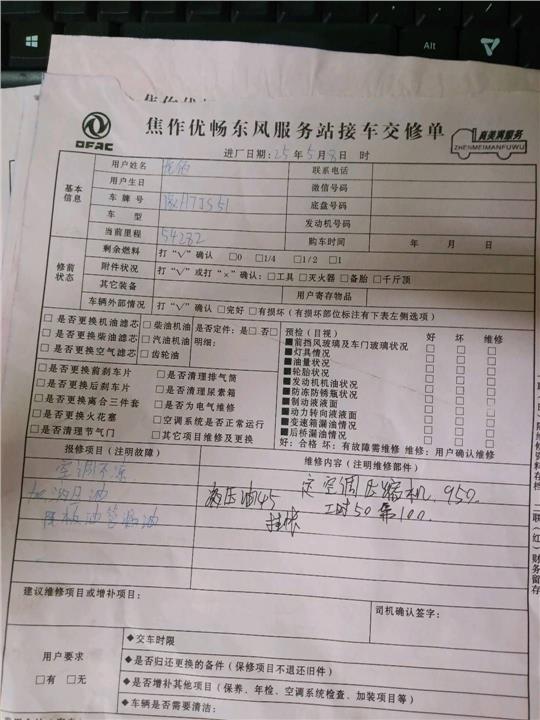 Alt
焦作优畅
DFAC
焦作优畅东风服务站接车交修单
真美满服务
ZHENMEIMANFUWU
进厂日期:25年5月8日 时
基本信息
用户姓名
联系电话
用户生日
微信号码
车牌号
底盘号码
车型
发动机号码
当前里程 54282
购车时间 年 月 日
修前状态
剩余燃料 打“√”确认 □0 □1/4 □1/2 □1
附件状况 打“√”或打“×”确认:□工具 □灭火器 □备胎 □千斤顶
其它装备
用户寄存物品
车辆外部情况 打“√”确认 □完好 □有损坏(有损坏部位标注有下表左侧选项)
□是否更换机油滤芯 □柴油机油 是否定件:是□ 否□
□是否更换柴油滤芯 □汽油机油 明细:
□是否更换空气滤芯 □齿轮油
□是否更换前刹车片 □是否清理排气筒
□是否更换后刹车片 □是否清理尿素箱
□是否更换离合三件套 □是否为电气维修
□是否更换火花塞 □空调系统是否正常运行
□是否清理节气门 □其它项目维修及更换
预检(目视) 好 坏 维修
■前挡风玻璃及车门玻璃状况 □ □ □
■灯具情况 □ □ □
■油量状况 □ □ □
■轮胎状况 □ □ □
■发动机机油状况 □ □ □
■防冻防锈瓶状况 □ □ □
■制动液液面 □ □ □
■动力转向液液面 □ □ □
■变速箱漏油情况 □ □ □
■后桥漏油情况 □ □ □
好:合格 坏:有故障需维修 维修:用户确认维修
报修项目(注明故障)
维修内容(注明维修部件)
空调不凉
定空调压缩机 950.
液压油145
工时50 第100.
挂账
建议维修项目或增补项目:
司机确认签字:
用户要求
□有 □无
◆交车时限
◆是否归还更换的备件(保修项目不退还旧件)
◆是否增补其他项目(保养、年检、空调系统检查、加装项目等)
◆车辆是否需要清洁: